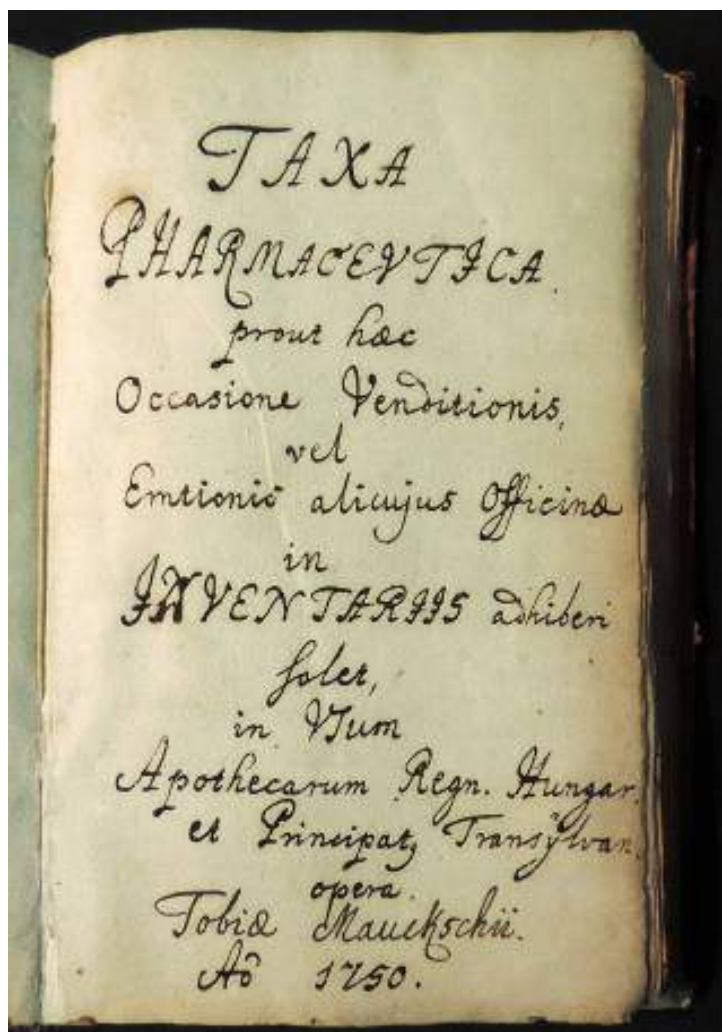 TAXA
PHARMACEVTICA.
prout hæc
Occasione Venditionis,
vel
Emtionis alicujus Officinæ
in
INVENTARIIS adhiberi
solet,
in Usum
Apothecarum Regn. Hungar.
et Principat, Transÿlvan.
opera.
Tobiæ Mauckschii.
Aō 1750.